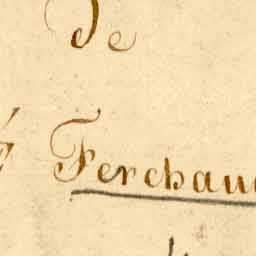 de
Ferchau